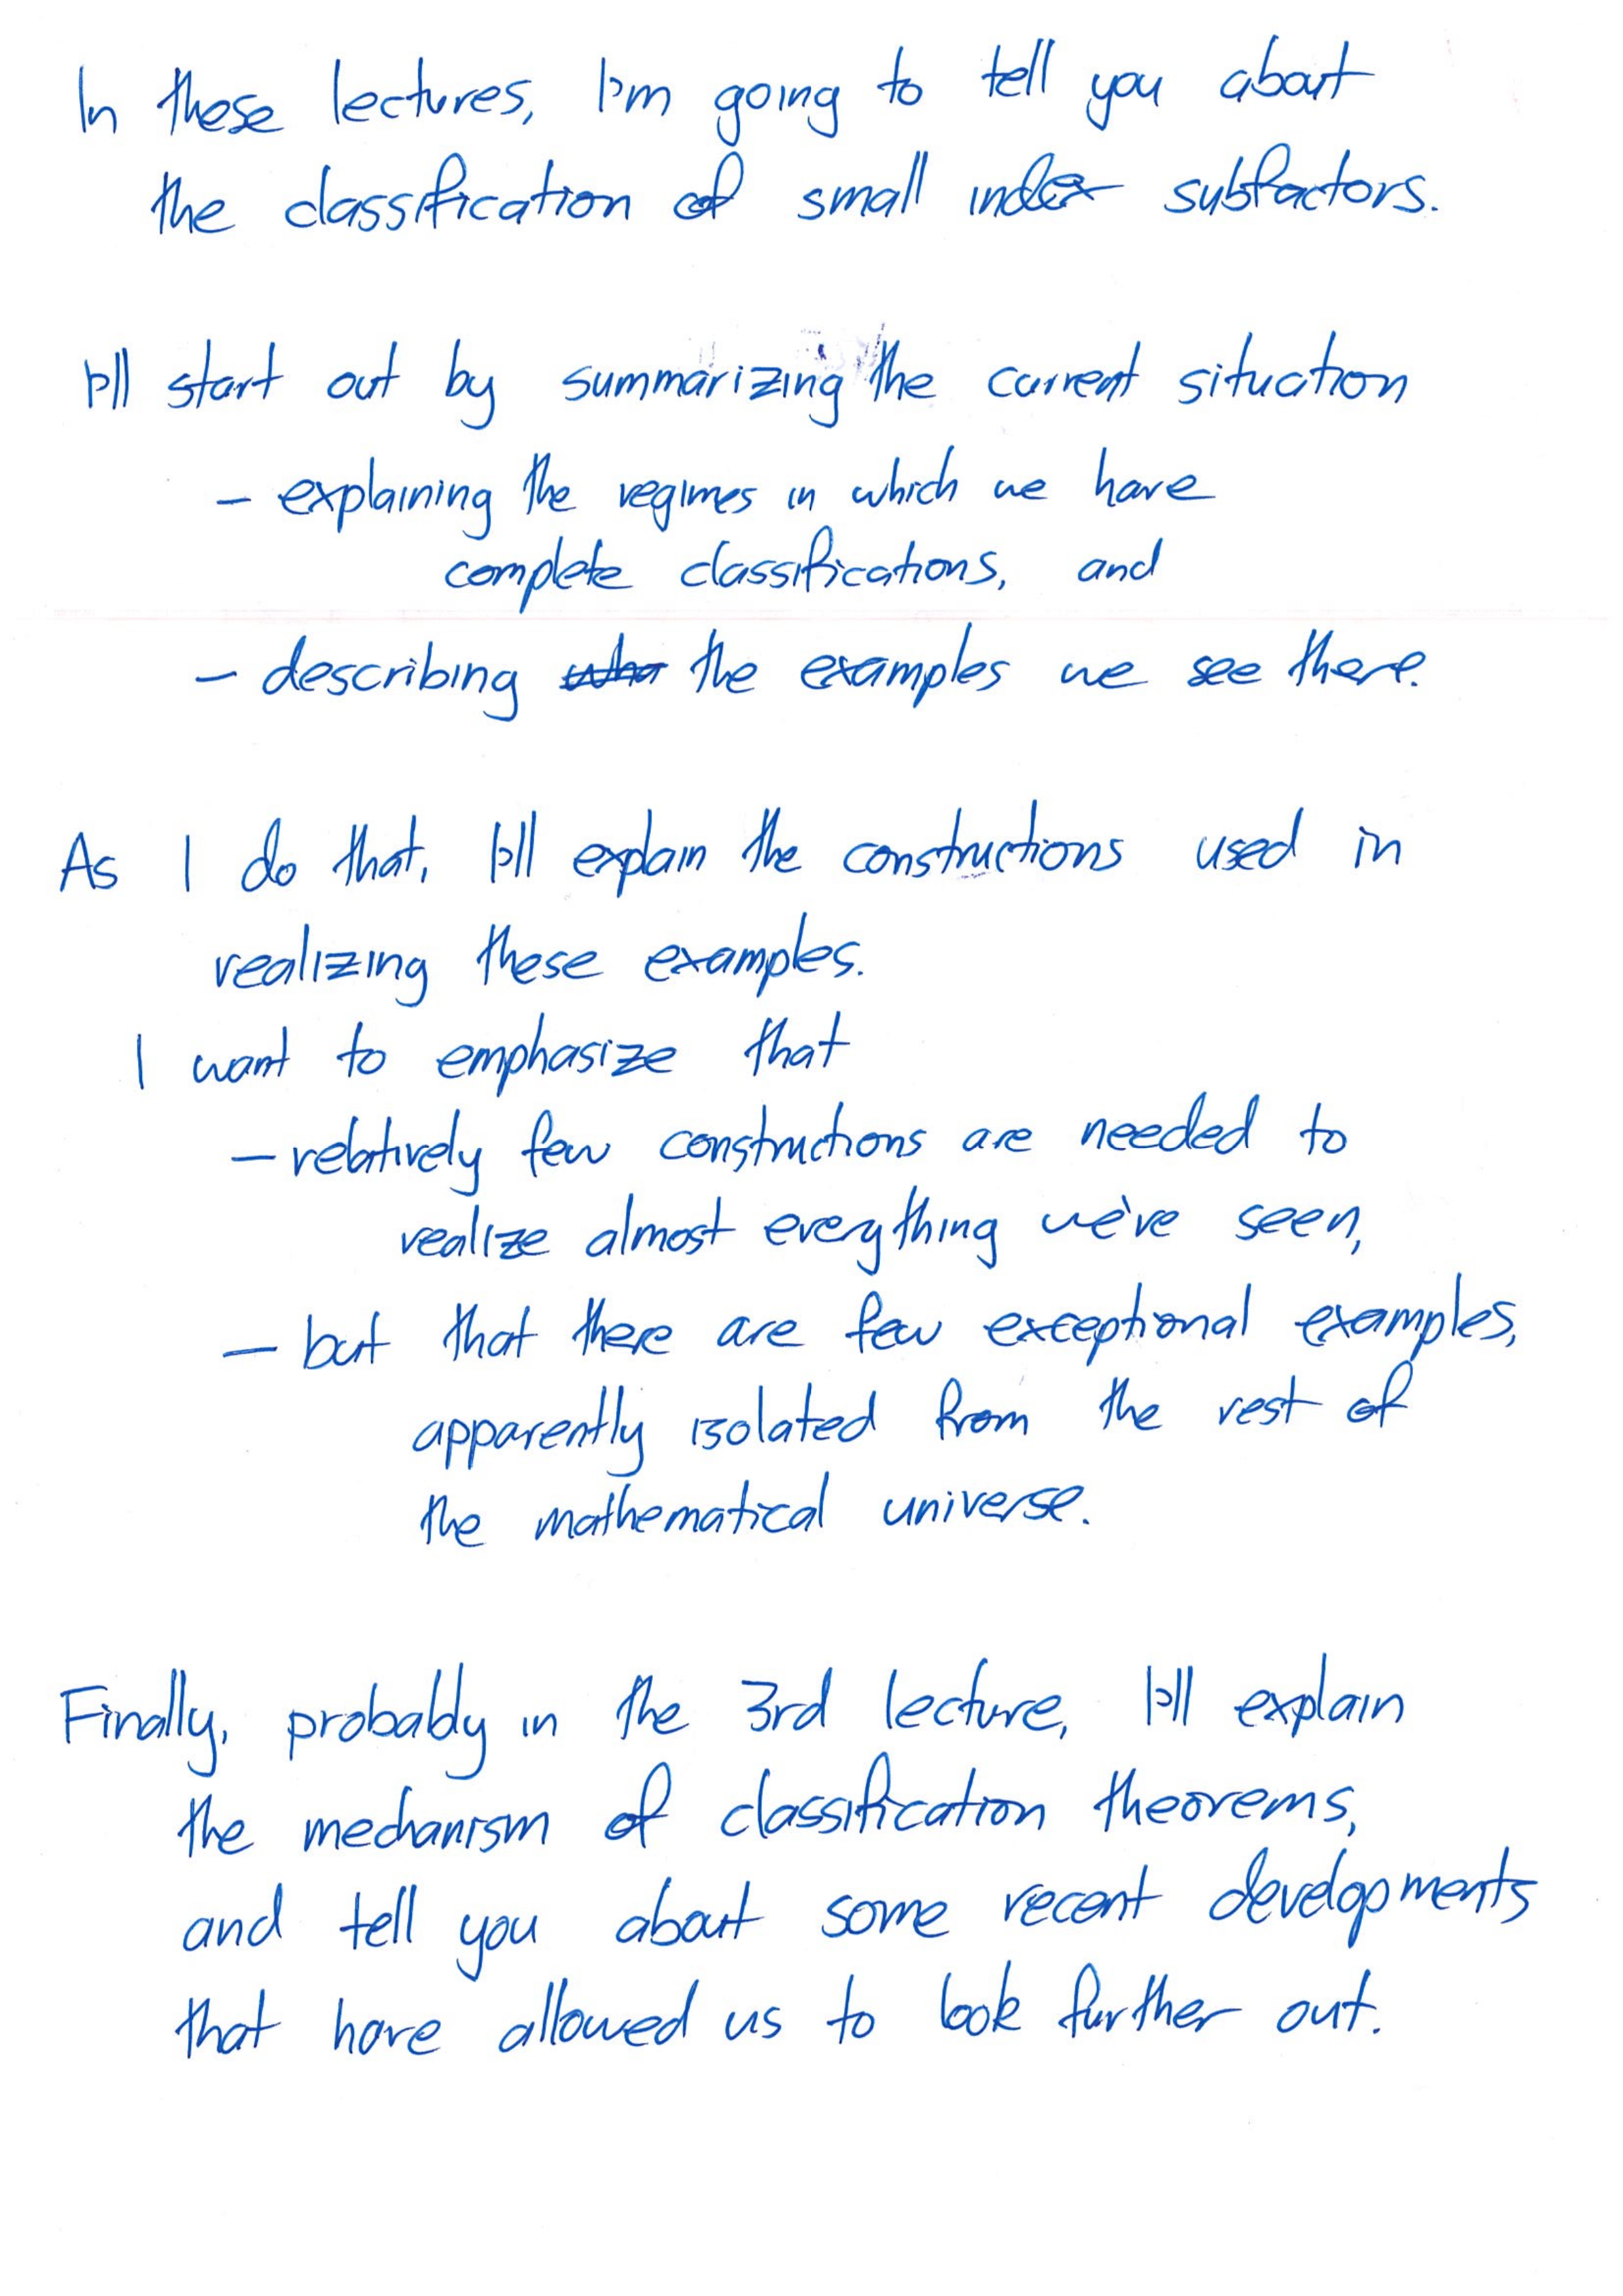 In these lectures, I'm going to tell you about
the classification of small index subfactors.
I'll start out by summarizing the current situation
- explaining the regimes in which we have
complete classifications, and
- describing the examples we see there.
As I do that, I'll explain the constructions used in
realizing these examples.
I want to emphasize that
- relatively few constructions are needed to
realize almost everything we've seen,
- but that there are few exceptional examples,
apparently isolated from the rest of
the mathematical universe.
Finally, probably in the 3rd lecture, I'll explain
the mechanism of classification theorems,
and tell you about some recent developments
that have allowed us to look further out.